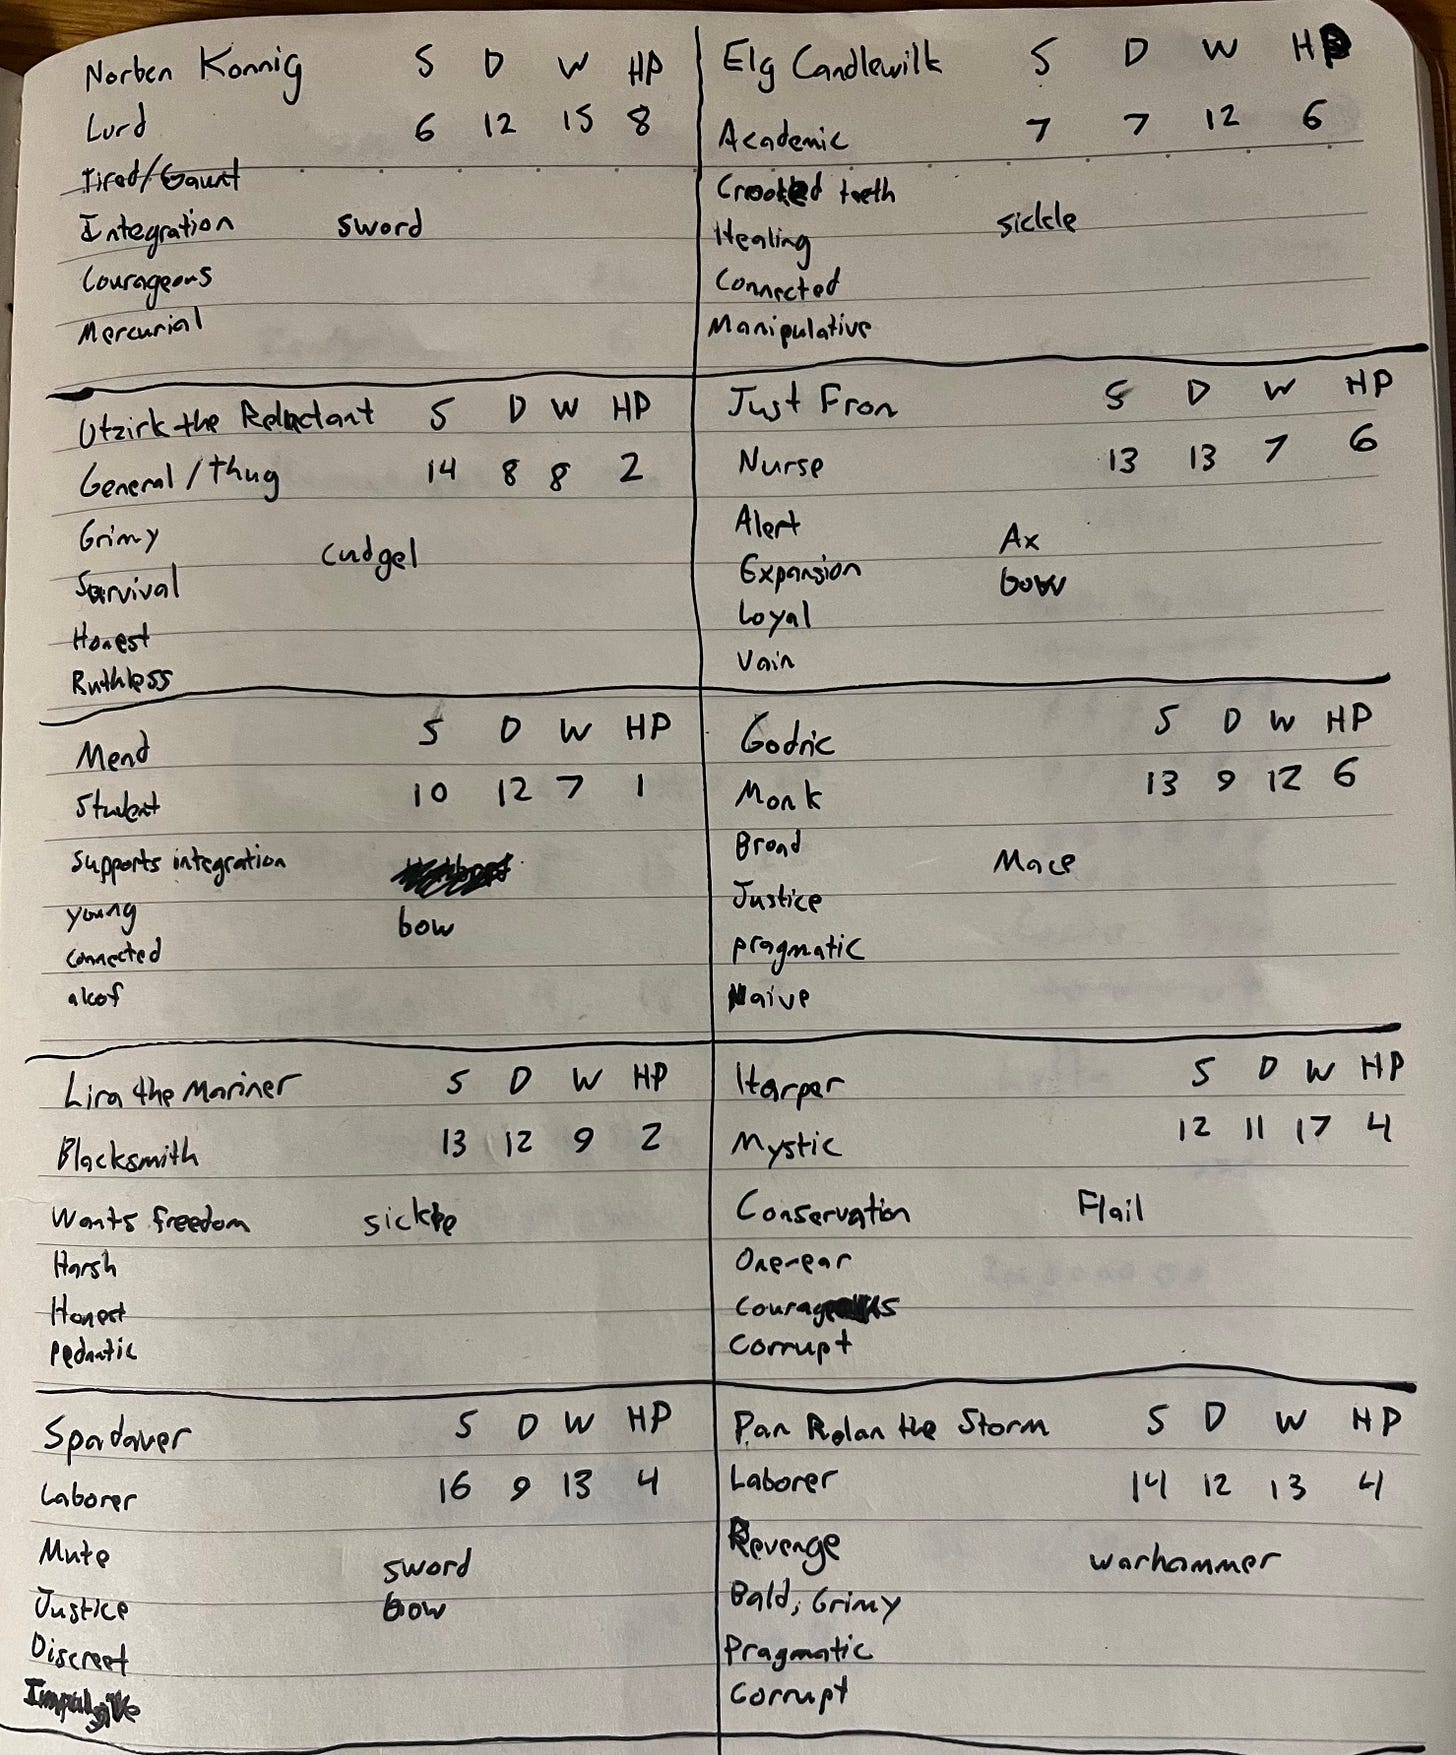 Norben Konnig S D W HP
Lurd 6 12 15 8
Tired/Gaunt
Integration sword
Courageous
Mercurial
Elg Candlewilt S D W HP
Academic 7 7 12 6
Crooked teeth
Healing sickle
Connected
Manipulative
Utzirk the Reluctant S D W HP
General/Thug 14 8 8 2
Grimy cudgel
Survival
Honest
Ruthless
Just Fron S D W HP
Nurse 13 13 7 6
Alert Ax
Expansion bow
Loyal
Vain
Mend S D W HP
Student 10 12 7 1
Supports integration
young bow
connected
aloof
Godric S D W HP
Monk 13 9 12 6
Broad Mace
Justice
pragmatic
Naive
Lira the Mariner S D W HP
Blacksmith 13 12 9 2
Wants freedom sickle
Harsh
Honest
Pedantic
Harper S D W HP
Mystic 12 11 17 4
Conservation Flail
One-ear
Courageous
Corrupt
S D W HP
Laborer 16 9 13 4
Mute sword
Justice bow
Discreet
Impulsive
Pan Rolan the Storm S D W HP
Laborer 14 12 13 4
Revenge warhammer
Bald, Grimy
Pragmatic
Corrupt